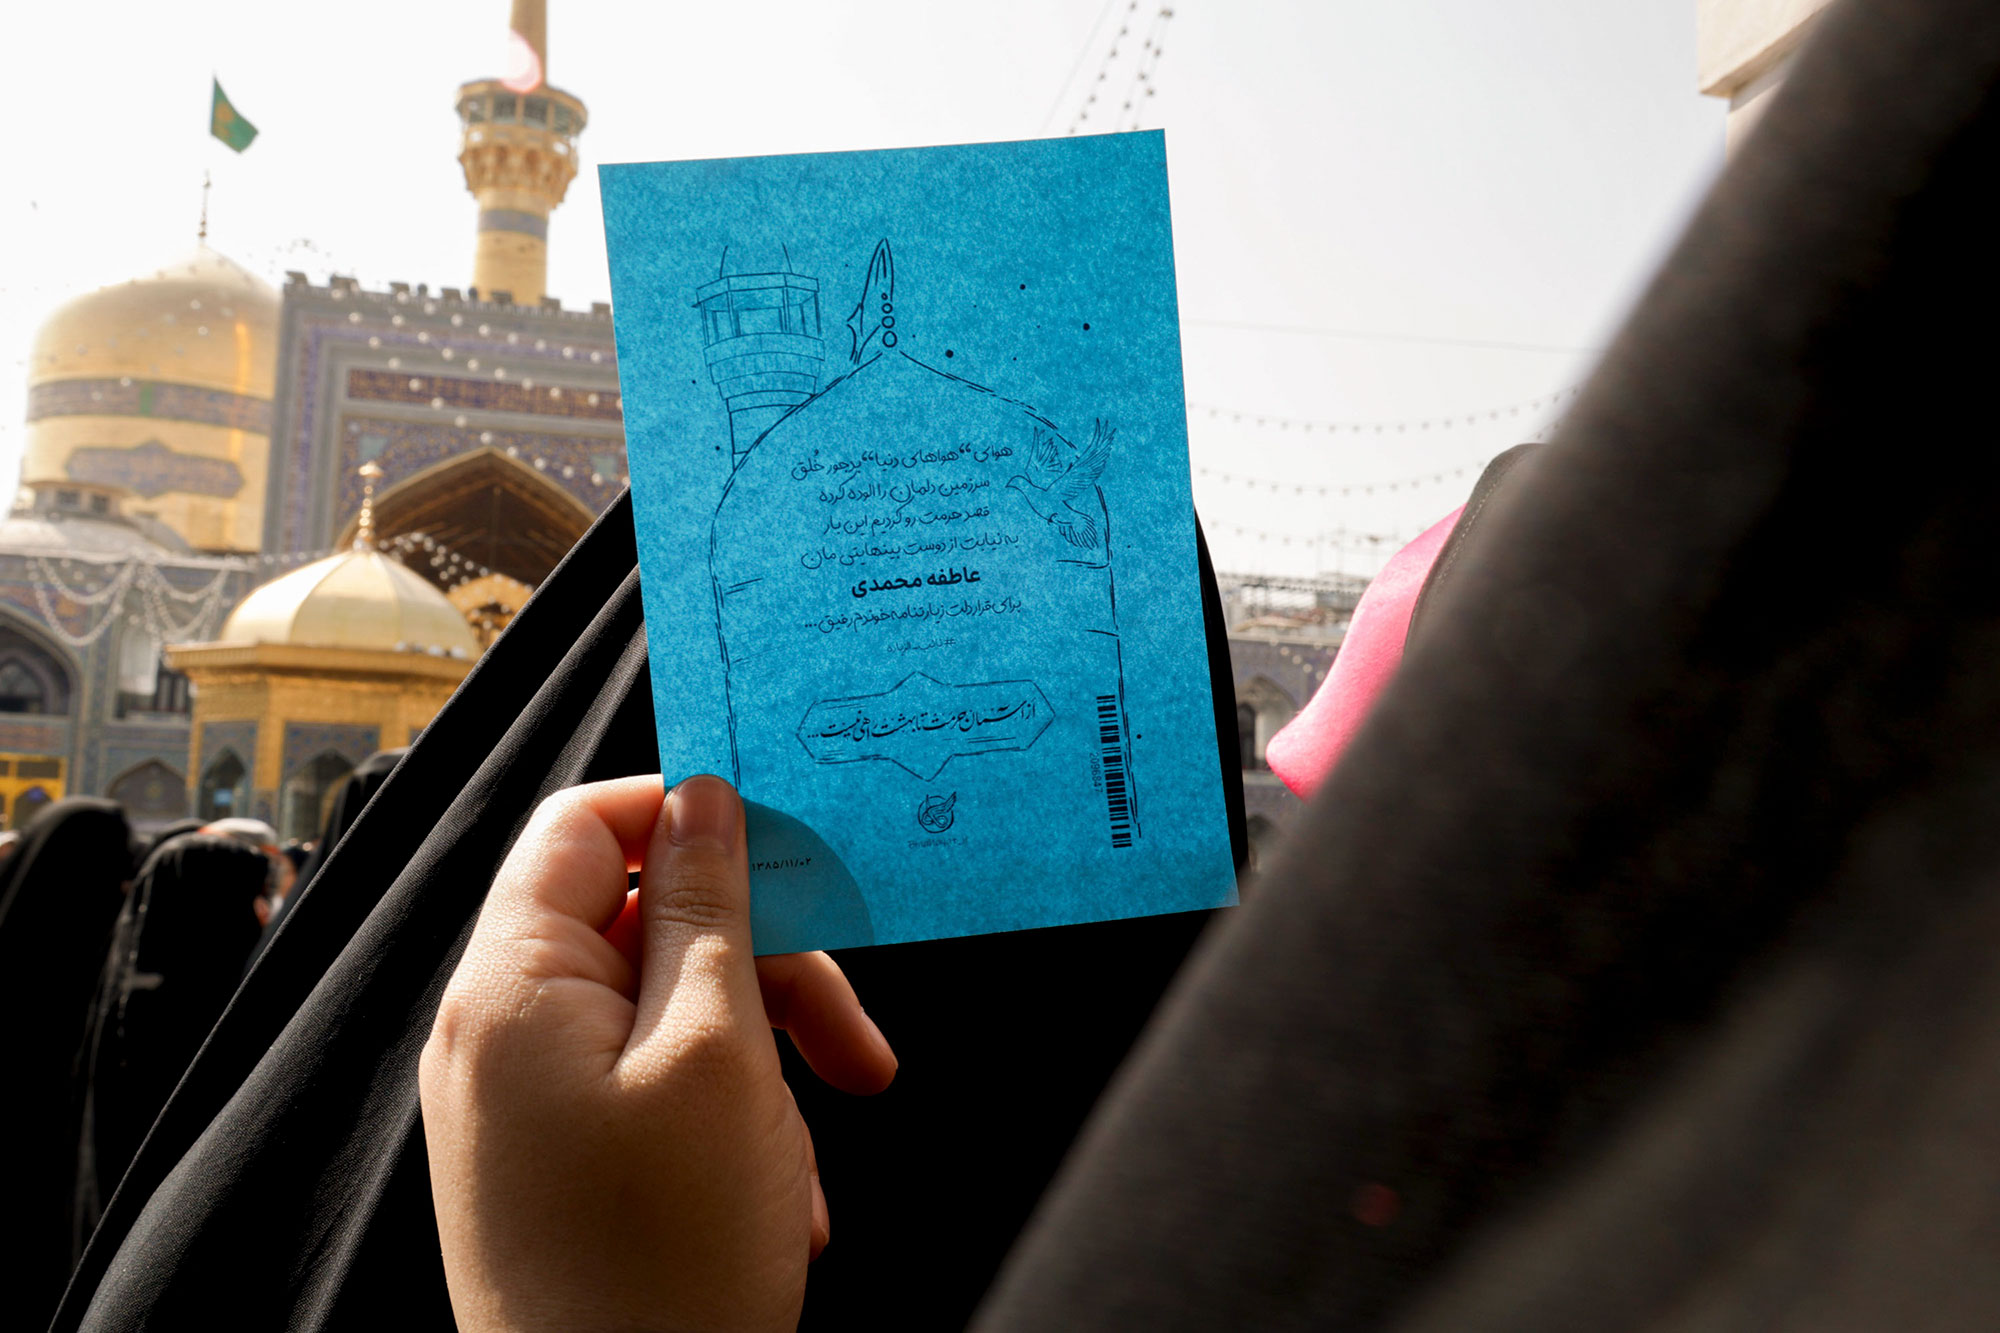 هوای “هواهای دنیا“ بدجور خُلق
سرزمین دلمان را آلوده کرده
قصد حرمت رو کردیم این بار
به نیابت از دوست بینهایتی مان
عاطفه محمدی
برای قرار دلت زیارتنامه خوندم رفیق...
از آسمان حرمت تا بهشت راهی نیست...
۱۳۸۵/۱۱/۰۲